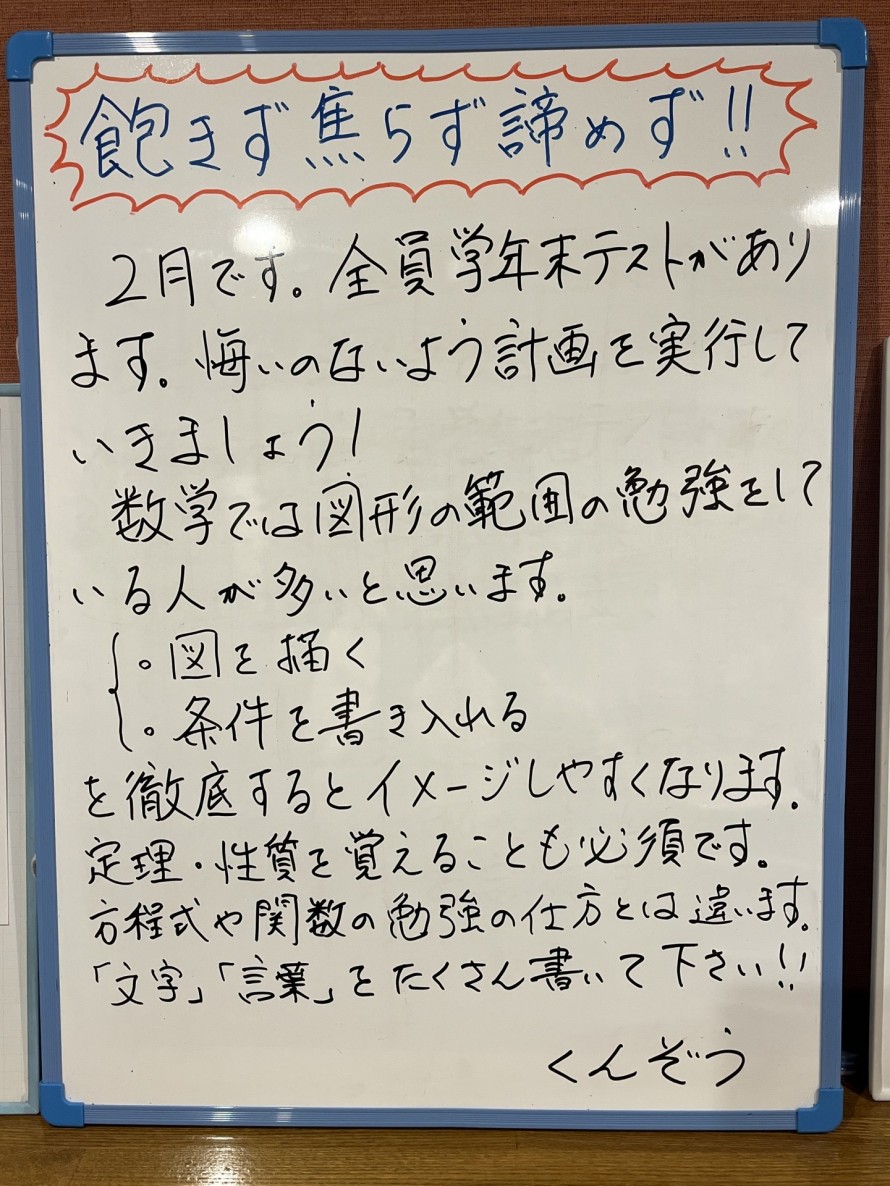 飽きず焦らず諦めず!!
2月です。全員学年末テストがあり
ます。悔いのないよう計画を実行して
いきましょう!
数学では図形の範囲の勉強をして
いる人が多いと思います。
。図を描く
。条件を書き入れる
を徹底するとイメージしやすくなります。
定理・性質を覚えることも必須です。
方程式や関数の勉強の仕方とは違います。
「文字」「言葉」をたくさん書いて下さい!!
くんぞう